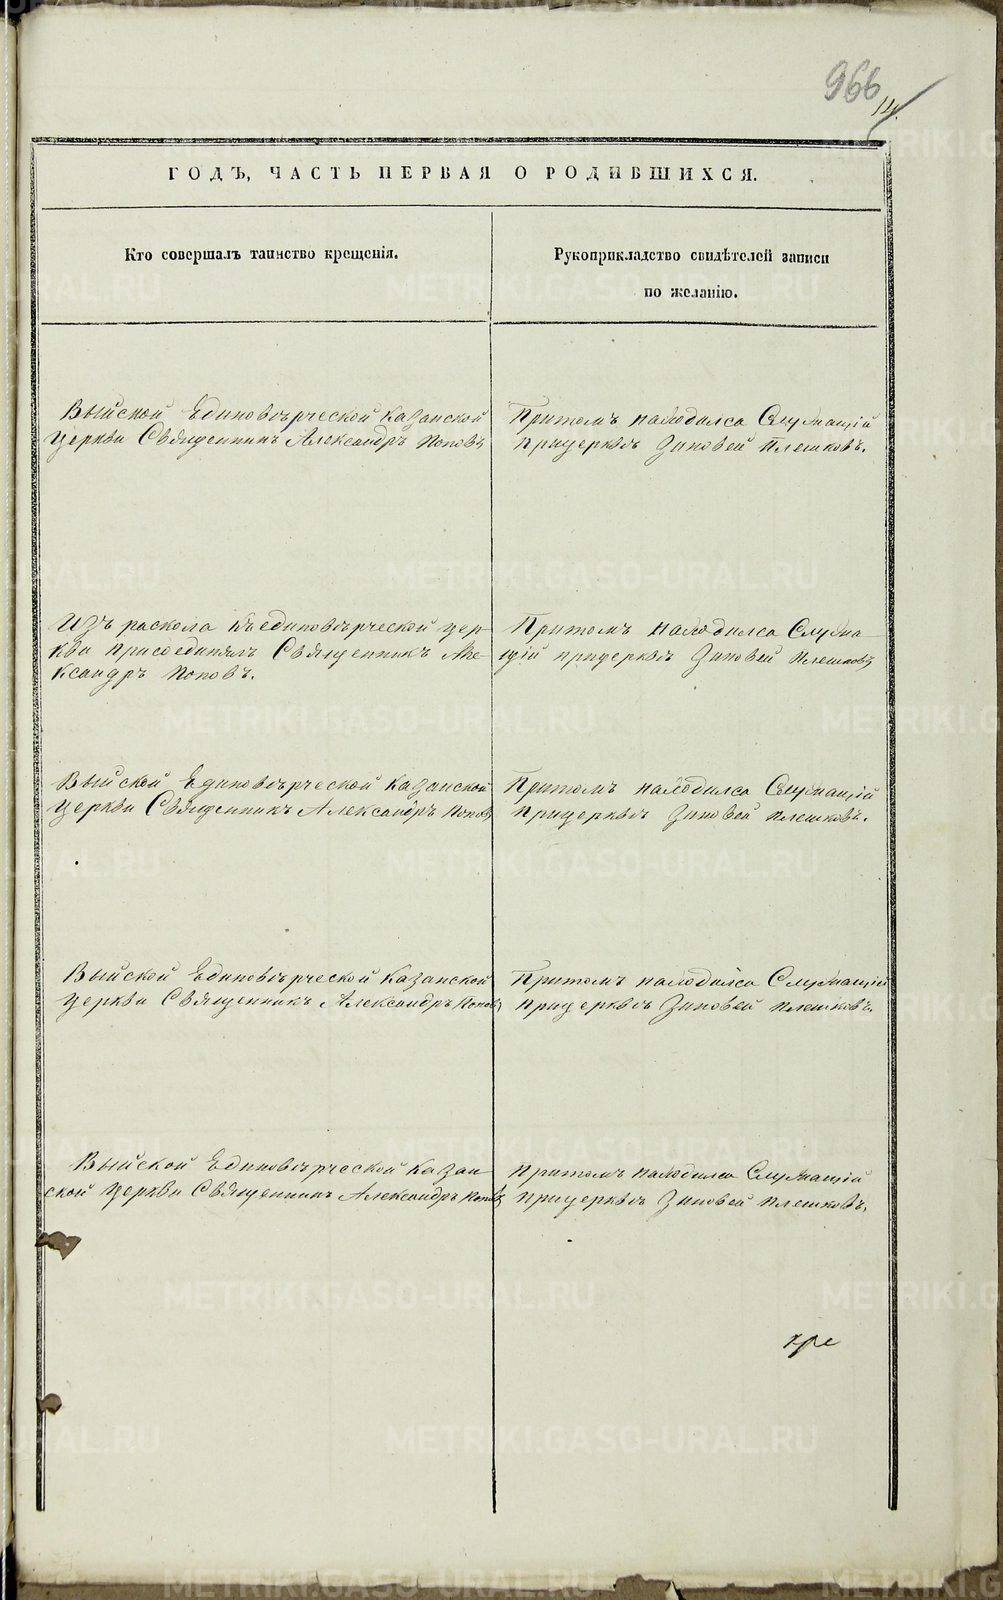 966
14.
ГОДЪ, ЧАСТЬ ПЕРВАЯ О РОДИВШИХСЯ.
Кто совершалъ таинство крещенія.
Рукоприкладство свидѣтелей записи
по желанію.
Выйской Единовѣрческой Казанской
церкви Священникъ Александръ Поповъ
Притомъ находился Служащій
прицерквѣ Зиновей Плешковъ.
Изъ раскола къединовѣрческой цер-
кви присоединялъ Священникъ Але-
ксандръ Поповъ.
Притомъ находился Служа-
щій прицерквѣ Зиновей Плешковъ
Выйской Единовѣрческой Казанской
церкви Священникъ Александръ Поповъ
Притомъ находился Служащій
Прицерквѣ Зиновей Плешковъ.
Выйской Единовѣрческой Казанской
церкви Священникъ Александръ Поповъ
Притомъ находился Служащій
прицерквѣ Зиновей Плешковъ.
Выйской Единовѣрческой Казан-
ской церкви Священникъ Александръ Поповъ
Притомъ находился Служащій
прицерквѣ Зиновей Плешковъ.
METRIKI.GASO-URAL.RU